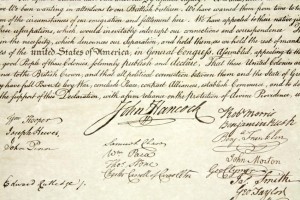 in our attentions to our British brethren. We have warned them from time to time
of the circumstances of our emigration and settlement here. We have appealed to their native
usurpations, which, would inevitably interrupt our connections and correspondence.
necessity, which denounces our Separation, and hold them, as we hold the rest of
of the united States of America, in General Congress, Assembled, appealing to the
good People of these Colonies, solemnly publish and declare, That these United Colonies
to the British Crown, and that all political connection between them and the State of
have full Power to levy War, conclude Peace, contract Alliances, establish Commerce, and to do
the support of this Declaration, with a firm reliance on the Protection of divine Providence
John Hancock
Wm Hooper
Joseph Hewes,
John Penn
Edward Rutledge
Samuel Chase
Wm Paca
Thos Stone
Charles Carroll of Carrollton
Robt Morris
Benjamin Rush
Benja Franklin
John Morton
Geo Clymer
Jas Smith
Geo Taylor